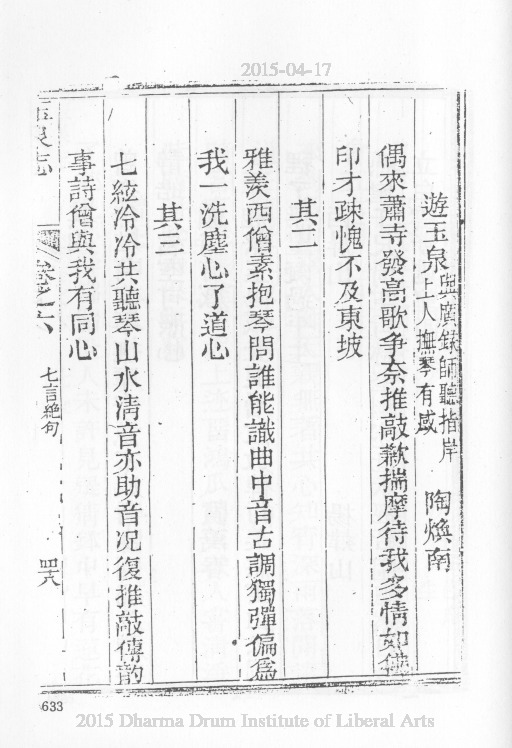 2015-04-17
遊玉泉 與廣錄師聽指岸上人撫琴有感 陶煥南
偶來蕭寺發高歌争奈推敲歉揣摩待我多情如佛
印才疎愧不及東坡
其二
雅羡西僧素抱琴問誰能識曲中音古調獨彈偏為
我一洗塵心了道心
其三
七絃冷冷共聽琴山水清音亦助音况復推敲傳韵
事詩僧與我有同心
玉泉志 卷之六 七言絶句 四六
633
2015 Dharma Drum Institute of Liberal Arts